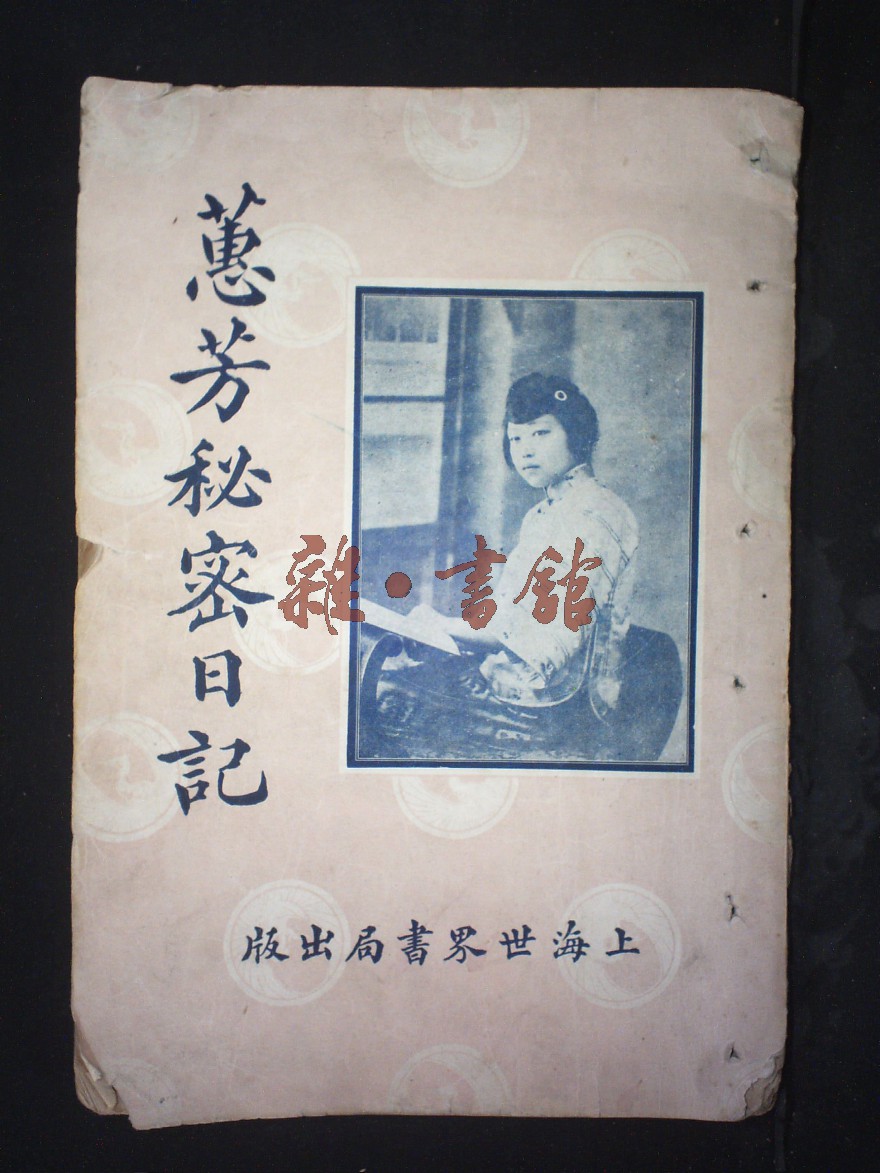 蕙芳秘密日記
雜·書館
上海世界書局出版